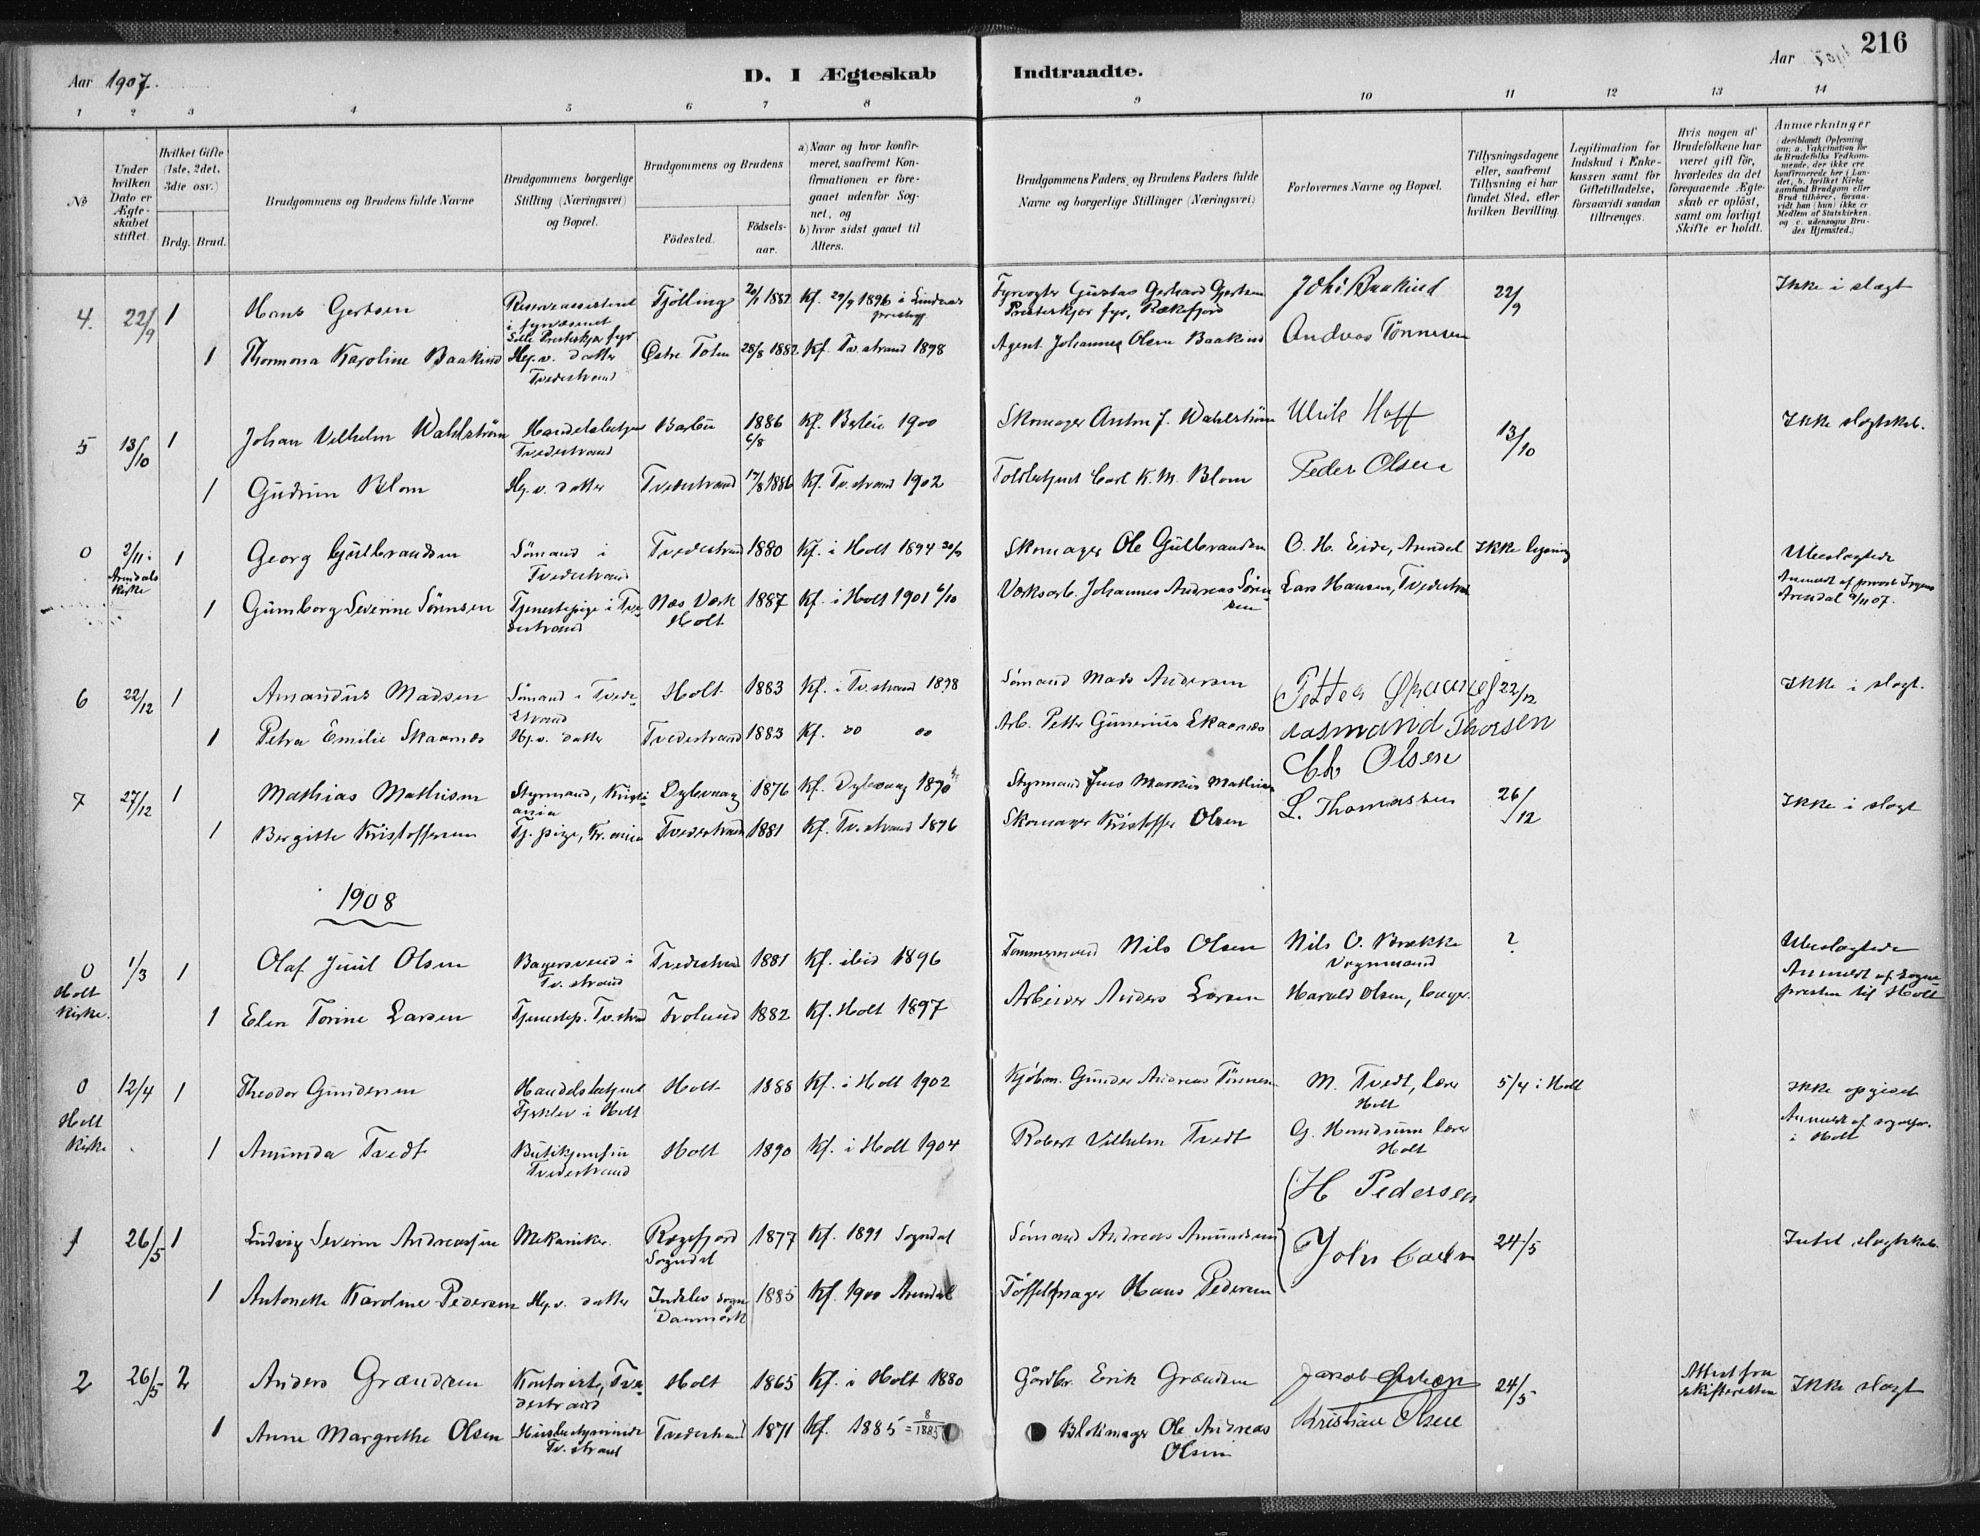 216
Aar 1907.
D. I Ægteskab Indtraadte.
Aar
1 2 3 4 5 6 7 8 9 10 11 12 13 14
No
Under hvilken Dato er Ægteskabet stiftet.
Hvilket Gifte (1ste, 2det, 3die osv.)
Brdg. Brud.
Brudgommens og Brudens fulde Navne
Brudgommens borgerlige Stilling (Næringsvei) og Bopæl.
Brudgommens og Brudens
Fødested. Fødselsaar.
a) Naar og hvor konfirmeret, saafremt Konfirmationen er foregaaet udenfor Sognet, og
b) hvor sidst gaaet til Alters.
Brudgommens Faders og Brudens Faders fulde Navne og borgerlige Stillinger (Næringsvei)
Forlovernes Navne og Bopæl.
Tillysningsdagene eller, saafremt Tillysning ei har fundet Sted, efter hvilken Bevilling.
Legitimation for Indskud i Enkekassen samt for Giftetilladelse, forsaavidt saadan tiltrænges.
Hvis nogen af Brudefolkene har været gift før, hvorledes da det foregaaende Ægteskab er opløst, samt om lovligt Skifte er holdt.
Anmærkninger (deriblandt Oplysning om: a. Vakcination for de Brudefolks Vedkommende, der ikke ere konfirmerede her i Landet, b. hvilket Kirkesamfund Brudgom eller Brud tilhører, forsaavidt han (hun) ikke er Medlem af Statskirken, og c. udensogns Brudes Hjemsted.)
4. 22/9 1 Hans Gertsen Reserveassistent i fyrvæsenet Lille Presteskjær fyr Tjølling 20/1 1882 Kf. 29/9 1896 i Lindaas prestegj Fyrvogter Gustav Gerhard Gjertsen Presteskjær fyr, Rækefjord Johs Baakind 22/9 Ikke i slægt
1 Thormona Karoline Baakind Hj.v. datter Tvedestrand Østre Toten 28/8 1882 Kf. Tv.strand 1898 Agent Johannes Olsen Baakind Andreas Tønnesen
5 13/10 1 Johan Vilhelm Wahlstrøm Handelsbetjent Tvedestrand Barbu 1886 6/8 Kf. Barbu 1900 Skomager Anton J. Wahlstrøm Ulrik Hoff 13/10 Ikke slegtskab.
1 Gudrun Blom Hj.v. datter Tvedestrand 17/8 1886 Kf. Tv.strand 1902 Toldbetjent Carl K. M. Blom Peder Olsen
0 2/11. Arendals kirke 1 Georg Gulbrandsen Sømand i Tvedestrand Tvedestrand 1880 Kf. i Holt 1894 30/9 Skomager Ole Gulbrandsen O. H. Eide, Arendal Ikke lysning Ubeslægtede
1 Gunborg Severine Sørensen Tjenestepige i Tvedestrand Næs Værk Holt 1887 Kf. i Holt 1901 6/10 Værksarb. Johannes Andreas Sørensen Lars Hansen, Tvedestrand Anmeldt af provst Arendal 9/11 07.
6 22/12 1 Amandus Madsen Sømand i Tvedestrand Holt 1883 Kf. i Tv.strand 1898 Sømand Mads Andersen 22/12 Ikke i slægt.
1 Petra Emilie Skaarnes Hj.v. datter Tvedestrand 1883 Kf. do do Arb. Petter Gunerius Skaarnes Aasmund Thorsen
7 27/12 1 Mathias Mathisen Styrmand, Kristiania Dybvaag 1876 Kf. Dybvaag 1890 Styrmand Jens Markus Mathisen Chr Olsen 26/12 Ikke i slægt
1 Bergitte Kristoffersen Tj. pige, Kr.ania Tvedestrand 1881 Kf. Tv.strand 1896 Skomager Kristoffer Olsen L. Thomassen
1908
0 Holt kirke. 1/3 1 Olaf Juul Olsen Bagersvend i Tv.strand Tvedestrand 1881 Kf. ibid 1896 Tømmermand Nils Olsen Nils O. Brække Vognmand ? Ubeslægtede
1 Elen Torine Larsen Tjenestep. Tv.strand Froland 1882 Kf. Holt 1897 Arbeider Anders Larsen Harald Olsen, bager. Anmeldt af sognepresten til Holt
0 Holt kirke 12/4 1 Theodor Gundersen Handelsbetjent Fjeklev i Holt Holt 1888 Kf. i Holt 1902 Kjøbm. Gunder Andreas Tønnesen M. Tvedt, lærer Holt 5/4 i Holt Ikke opgivet
1 Amunda Tvedt Butikjomfru Tvedestrand Holt 1890 Kf. i Holt 1904 Robert Vilhelm Tvedt G. Hendrum lærer Holt Anmeldt af sognepr. i Holt
1 26/5 1 Ludvig Severin Andreassen Mekaniker. Rægefjord Sogndal 1877 Kf. 1891 Sogndal Sømand Andreas Amundsen H Pedersen 24/5 Intet slægtskab.
1 Antonette Karoline Pedersen Hj.v. datter Indslev sogn Danmark 1885 Kf. 1900 Arendal Tøffelmager Hans Pedersen John
2 26/5 2 Anders Grændsen Kontorist, Tvedestrand Holt 1865 Kf. i Holt 1880 Gårdbr. Erik Grændsen Jacob 24/5 Attest fra skifteretten Ikke slægt
1 Anne Margrethe Olsen Husbestyrerinde Tv.strand Tvedestrand 1871 Kf. 1885 = 8/1885 Blokmager Ole Andreas Olsen Kristian Olsen